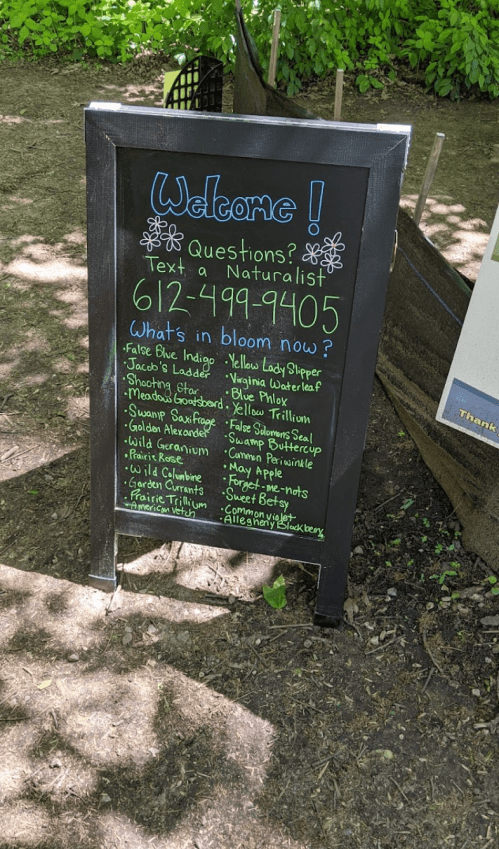 Welcome!
Questions?
Text a Naturalist
612-499-9405
What's in bloom now?
·False Blue Indigo
·Jacob's Ladder
·Shooting Star
·Meadow Goatsbeard
·Swamp Saxifrage
·Golden Alexander
·Wild Geranium
·Prairie Rose
·Wild Columbine
·Garden Currants
·Prairie Trillium
·American Vetch
·Yellow Lady Slipper
·Virginia Waterleaf
·Blue Phlox
·Yellow Trillium
·False Solomons Seal
·Swamp Buttercup
·Common Periwinkle
·May Apple
·Forget-me-nots
·Sweet Betsy
·Common violet
·Allegheny Blackberry
Thank